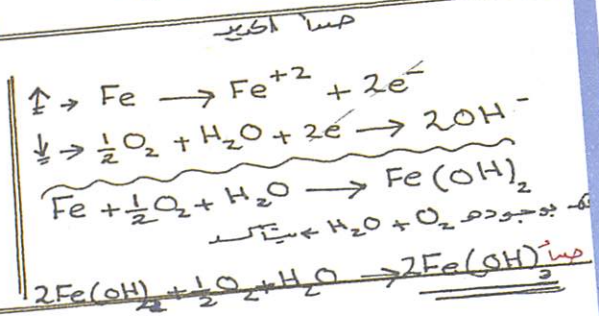 صدأ الحديد
↑ → Fe → Fe⁺² + 2e⁻
↓ → ½O₂ + H₂O + 2e → 2OH⁻
Fe + ½O₂ + H₂O → Fe(OH)₂
بوجود H₂O + O₂ يتأكسد
2Fe(OH)₂ + ½O₂ + H₂O → 2Fe(OH)₃ صدأ